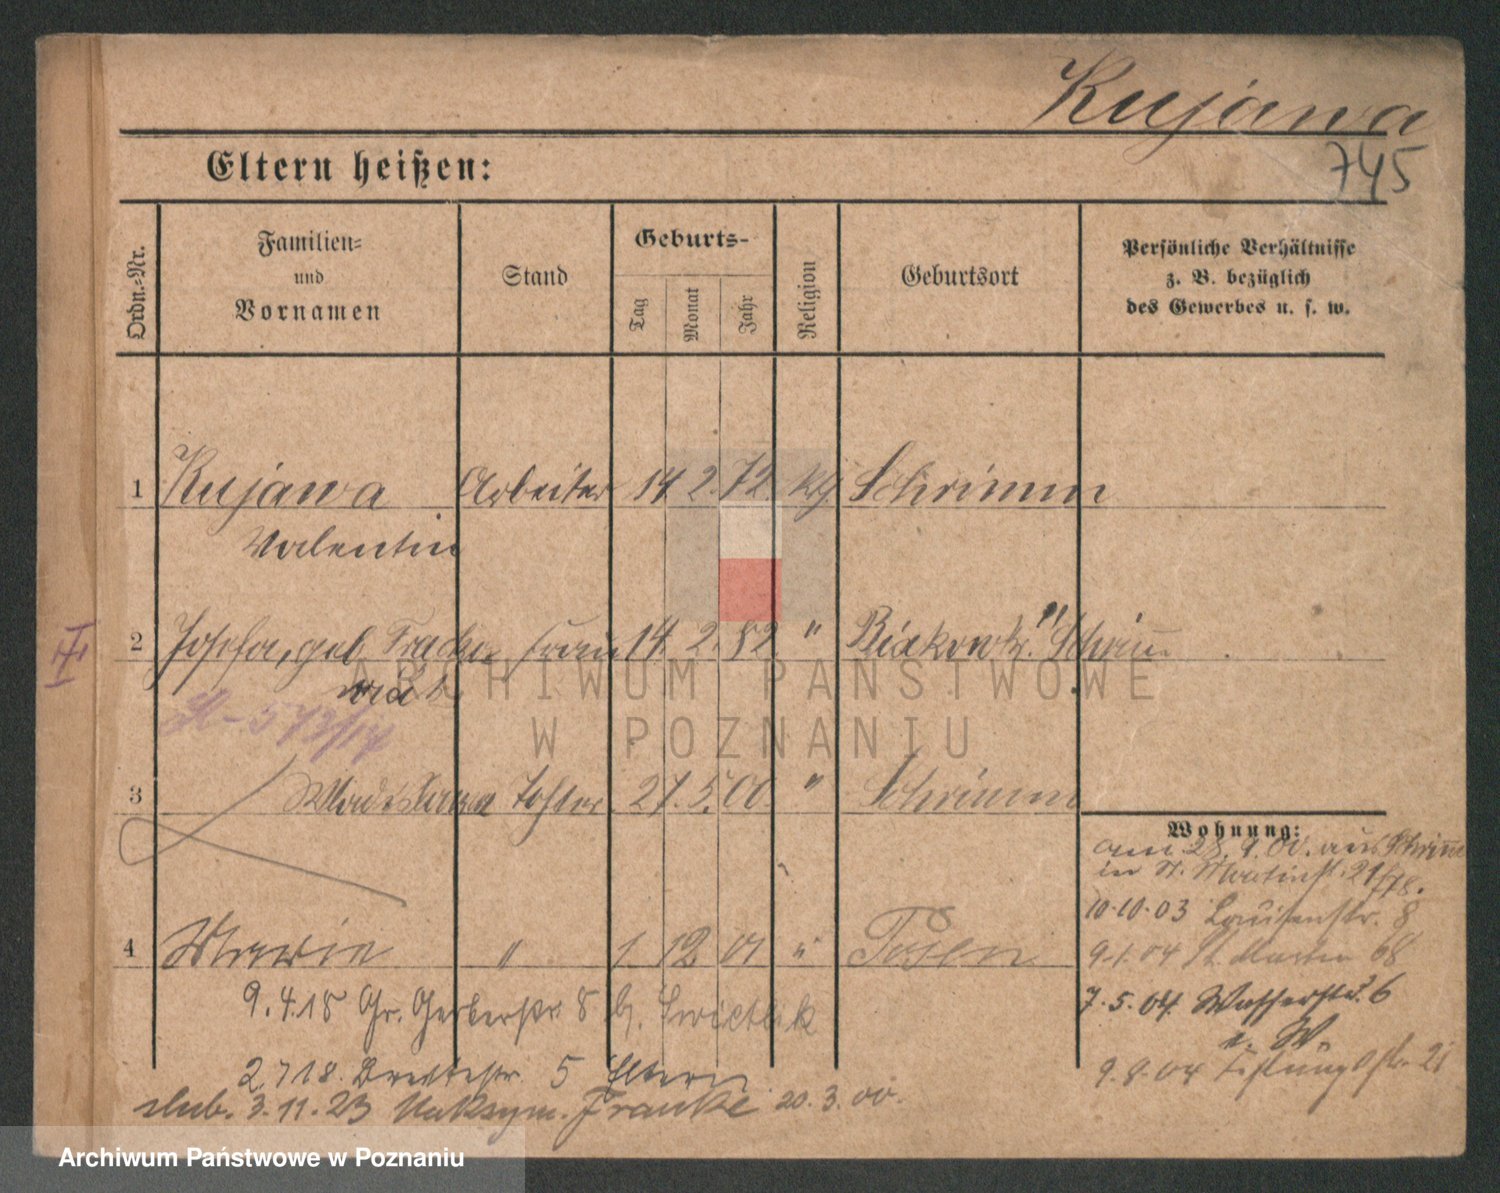 Kujawa
745
Eltern heißen:
Ordn.-Nr.
Familien-
und
Vornamen
Stand
Geburts-
Tag
Monat
Jahr
Religion
Geburtsort
Persönliche Verhältnisse
z. B. bezüglich
des Gewerbes u. s. w.
1 Kujawa Arbeiter 14. 2. 72. Schrimm
Valentin
2 Josefa, geb. Frau 14. 2. 82 "
3 Wladislawa Tochter 27. 5. 00. " Schrimm
4 Marie " 1. 12 01 " Posen
Wohnung:
am 28. 9. 00. aus Schrimm
in St. Martinst.
10.10.03 Louisenstr. 8
9.1.04 St. Martin 68
7.5.04. Wasserstr. 6
9.4.18 Gr. Gerberstr. 8 b. Swietlik
9.8.04 21
2.7.18. Breitestr. 5 Eltern
slub. 3.11.23 Maksym. Franke 20.3.00.
ARCHIWUM PAŃSTWOWE
W POZNANIU
Archiwum Państwowe w Poznaniu